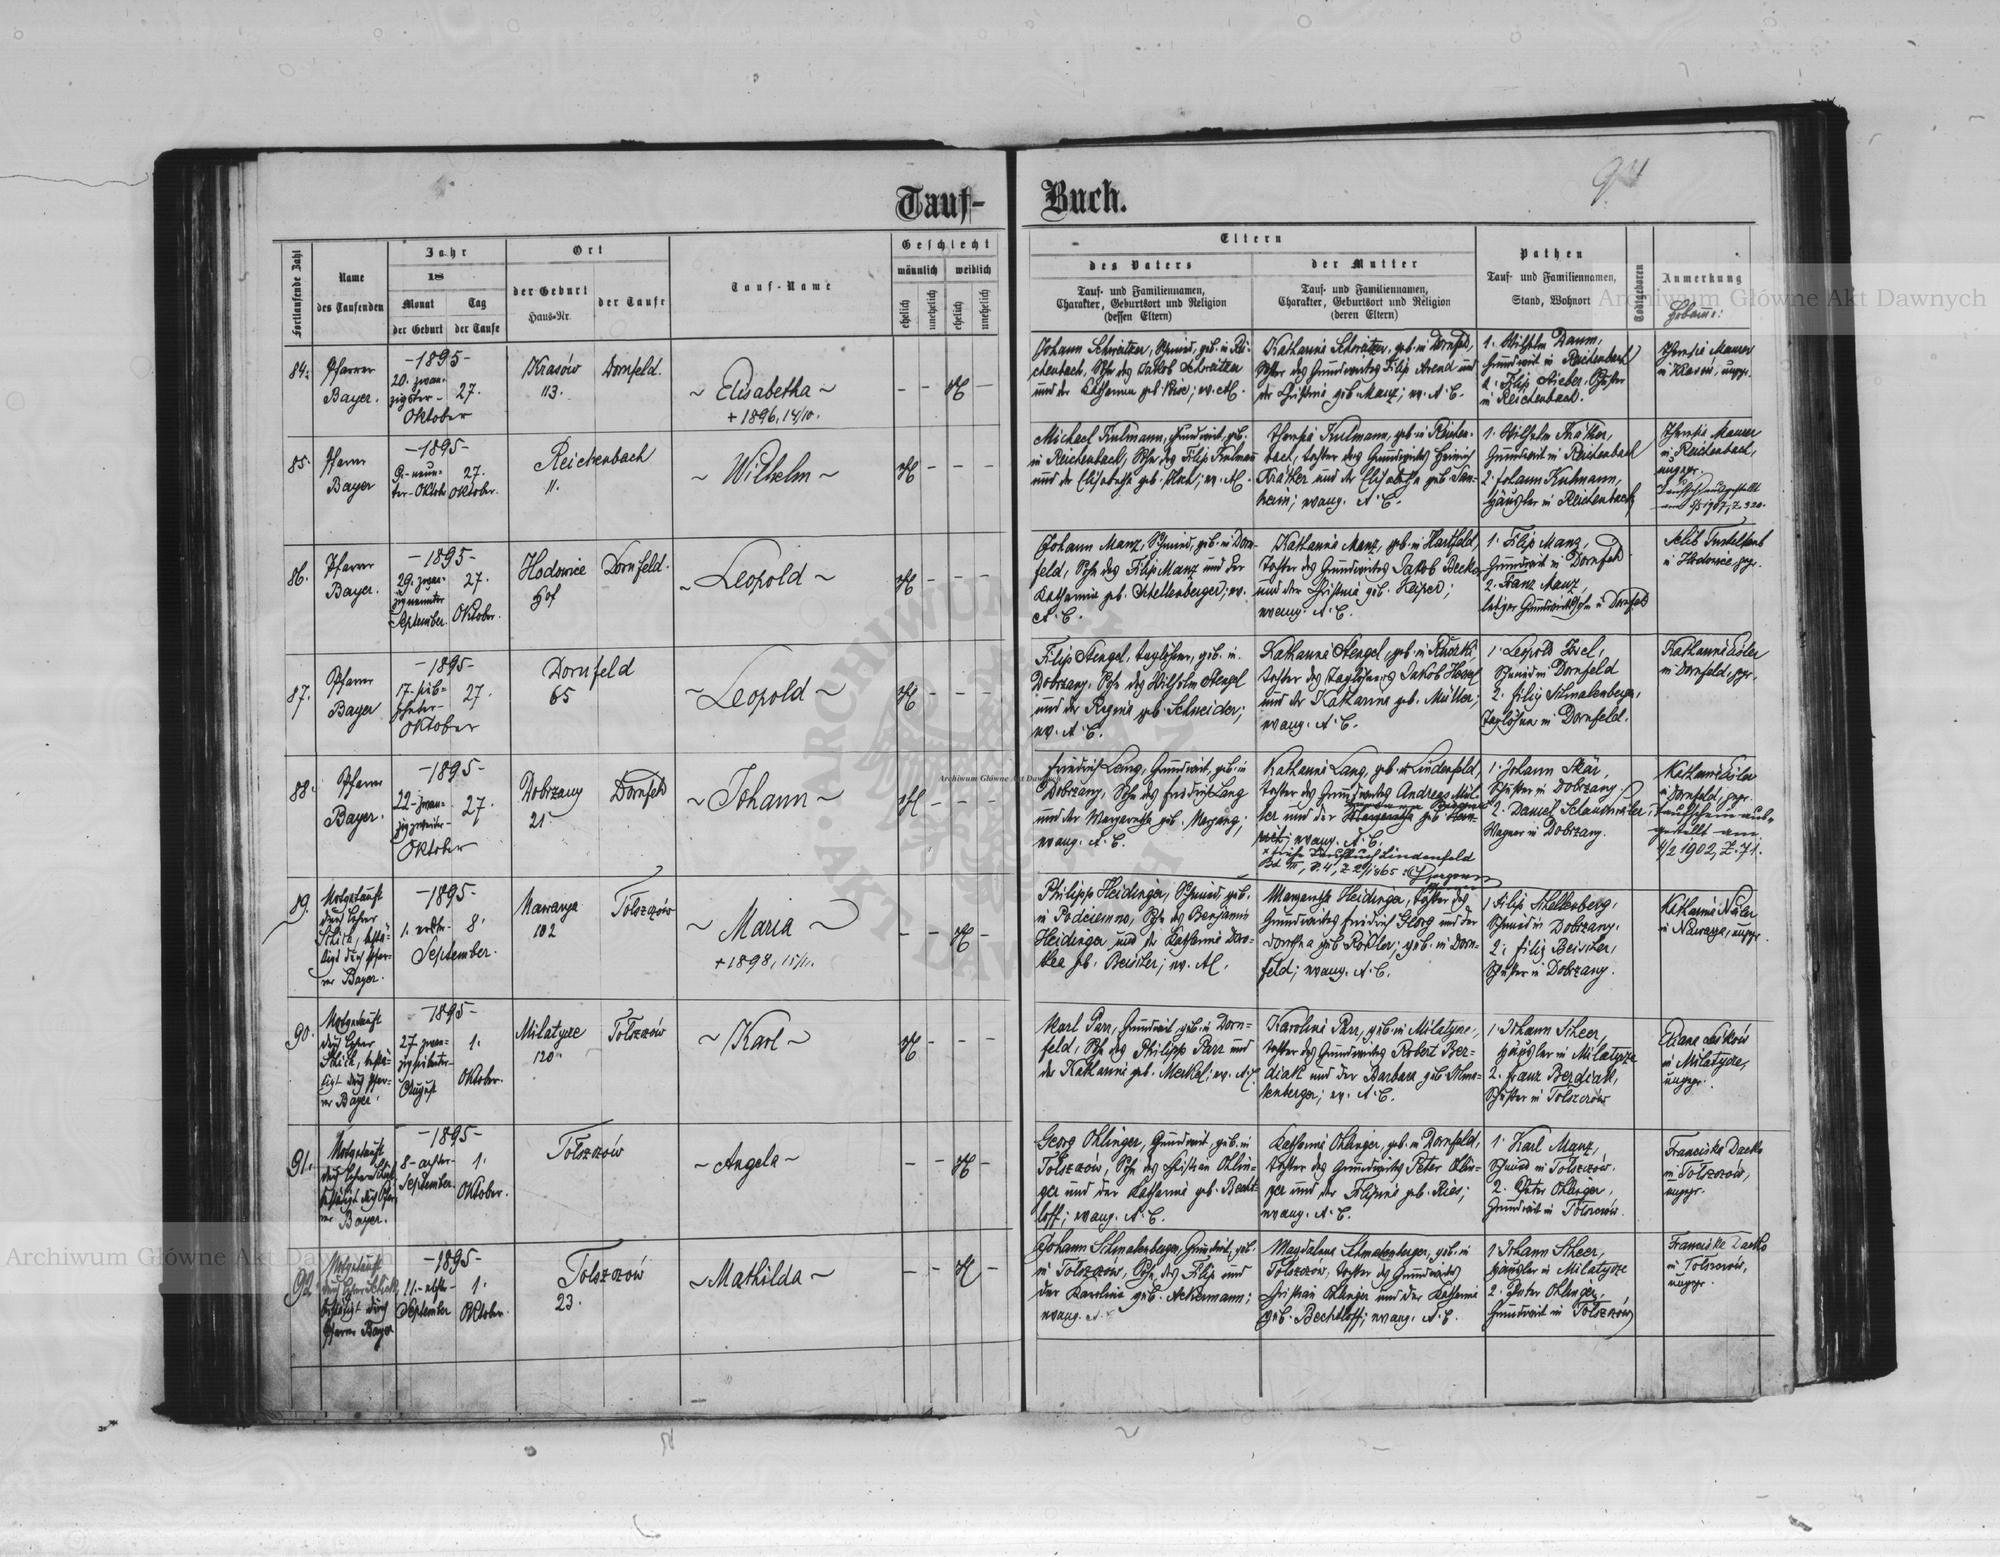 94
Tauf-Buch.
Fortlaufende Zahl
Name
des Taufenden
Jahr
18
Monat
der Geburt
Tag
der Taufe
Ort
der Geburt
Haus-Nr.
der Taufe
Tauf-Name
Geschlecht
männlich
weiblich
ehelich
unehelich
ehelich
unehelich
Eltern
des Vaters
Tauf- und Familiennamen,
Charakter, Geburtsort und Religion
(dessen Eltern)
der Mutter
Tauf- und Familiennamen,
Charakter, Geburtsort und Religion
(deren Eltern)
Pathen
Tauf- und Familiennamen,
Stand, Wohnort
Todtgeboren
Anmerkung
84.
Pfarrer
Bayer.
-1895-
20. zwan-
zigster-
Oktober
27.
Krasów
113.
Dornfeld.
~ Elisabetha ~
+ 1896, 14/10.
Johann Schweitzer, Schmied, geb. in Rei-
chenbach, Sohn des Jakob Schweitzer
und der Katharina geb.
Katharina Schweitzer, geb. in Dornfeld,
Tochter des Grundwirtes Filip Arend und
der Christina geb. Manz; ev. A. C.
1. Wilhelm Daum,
Grundwirt in Reichenbach
2. Filip
in Reichenbach.
Maurer
in Krasów, ungepr.
85.
Pfarrer
Bayer
-1895-
9.- neun-
ter- Oktob.
27.
Oktober.
Reichenbach
11.
~ Wilhelm ~
Michael Kulmann, Grundwirt, geb.
in Reichenbach, Sohn des Filip Kulmann
und der Elisabetha geb.
Kulmann, geb. in Reichen-
bach, Tochter des Grundwirtes Heinrich
und der Elisabetha geb.
evang. A. C.
1. Wilhelm
Grundwirt in Reichenbach
2. Johann Kulmann,
Häusler in Reichenbach
Maurer
in Reichenbach,
ungepr.
Taufschein ausgestellt
1907, Z. 320.
86.
Pfarrer
Bayer.
-1895-
29. zwan-
zigneunter
September
27.
Oktober.
Hodowice
Hof
Dornfeld.
~ Leopold ~
Johann Manz, Schmied, geb. in Dorn-
feld, Sohn des Filip Manz und der
Katharina geb. Schellenberger; ev.
A. C.
Katharina Manz, geb. in Hartfeld,
Tochter des Grundwirtes Jakob Becker
und der Christina geb.
evang. A. C.
1. Filip Manz,
Grundwirt in Dornfeld
2. Franz Manz,
lediger Grundwirtssohn in Dornfeld
in Hodowice gepr.
87.
Pfarrer
Bayer
-1895-
17. sieb-
zehnter-
Oktober
27.
Dornfeld
65
~ Leopold ~
Filip Stengel, Taglöhner, geb. in
Dobrzany, Sohn des Wilhelm Stengel
und der Regina geb. Schneider;
ev. A. C.
Katharina Stengel, geb. in
Tochter des Taglöhners Jakob
und der Katharina geb. Müller;
evang. A. C.
1. Leopold
Schmied in Dornfeld
2. Filip Schmalenberger,
Taglöhner in Dornfeld.
Katharina
in Dornfeld, gepr.
88.
Pfarrer
Bayer.
-1895-
22- zwan-
zigzweiter-
Oktober
27.
Dobrzany
21
Dornfeld
~ Johann ~
Friedrich Lang, Grundwirt, geb. in
Dobrzany, Sohn des Friedrich Lang
und der Margaretha geb.
evang. A. C.
Katharina Lang, geb. in Lindenfeld,
Tochter des Grundwirtes Andreas Mül-
ler und der Margaretha geb.
evang. A. C.
siehe Taufbuch Lindenfeld
1. Johann
Schuster in Dobrzany.
2. Daniel
Wagner in Dobrzany.
Katharina
in Dornfeld, gepr.
Taufschein aus-
gestellt am
4/2 1902, Z. 71.
89.
Notgetauft
durch Lehrer
Schick, bestä-
tigt durch Pfar-
rer Bayer.
-1895-
1. erster-
September.
8.
Nawarya
102
Tolszczów
~ Maria ~
+ 1898, 15/11.
Philipp Heidinger, Schmied, geb.
in Podciemno, Sohn des Benjamin
Heidinger und der Katharina Doro-
thea geb. Beischer; ev. A. C.
Margaretha Heidinger, Tochter des
Grundwirtes Friedrich Georg und der
Dorothea geb. Roßler; geb. in Dorn-
feld; evang. A. C.
1. Filip Schellenberg,
Schmied in Dobrzany.
2. Filip Beischer,
Schuster in Dobrzany.
Katharina
in Nawarya, ungepr.
90.
Notgetauft
durch Lehrer
Schick, bestä-
tigt durch Pfar-
rer Bayer.
-1895-
27 zwan-
zigsiebenter-
August
1.
Oktober.
Milatycze
120.
Tolszczów
~ Karl ~
Karl Parr, Grundwirt, geb. in Dorn-
feld, Sohn des Philipp Parr und
der Katharina geb. Merkel; ev. A. C.
Karolina Parr, geb. in Milatycze,
Tochter des Grundwirtes Robert Ber-
diak und der Barbara geb. Schma-
lenberger; ev. A. C.
1. Johann Scheer,
Häusler in Milatycze
2. Franz Berdiak,
Schuster in Tolszczów
in Milatycze,
ungepr.
91.
Notgetauft
durch Lehrer Schick
bestätigt durch Pfar-
rer Bayer.
-1895-
8- achter-
September.
1.
Oktober.
Tolszczów
~ Angela ~
Georg Ohlinger, Grundwirt, geb. in
Tolszczów, Sohn des Christian Ohlin-
ger und der Katharina geb. Becht-
loff; evang. A. C.
Katharina Ohlinger, geb. in Dornfeld,
Tochter des Grundwirtes Peter Ohlin-
ger und der Filippina geb. Ries;
evang. A. C.
1. Karl Manz,
Schmied in Tolszczów.
2. Peter Ohlinger,
Grundwirt in Tolszczów.
Franciska Dacko
in Tolszczów,
ungepr.
92
Notgetauft
durch Lehrer Schick
bestätigt durch
Pfarrer Bayer
-1895-
11.- elfter-
September
1.
Oktober.
Tolszczów
23.
~ Mathilda ~
Johann Schmalenberger, Grundwirt, geb.
in Tolszczów, Sohn des Filip und
der Karolina geb. Ackermann;
evang. A. C.
Magdalena Schmalenberger, geb. in
Tolszczów, Tochter des Grundwirtes
Christian Ohlinger und der Katharina
geb. Bechtloff; evang. A. C.
1. Johann Scheer,
Häusler in Milatycze
2. Peter Ohlinger,
Grundwirt in Tolszczów
Franciska Dacko
in Tolszczów,
ungepr.
Archiwum Główne Akt Dawnych
Archiwum Główne Akt Dawnych
Archiwum Główne Akt Dawnych